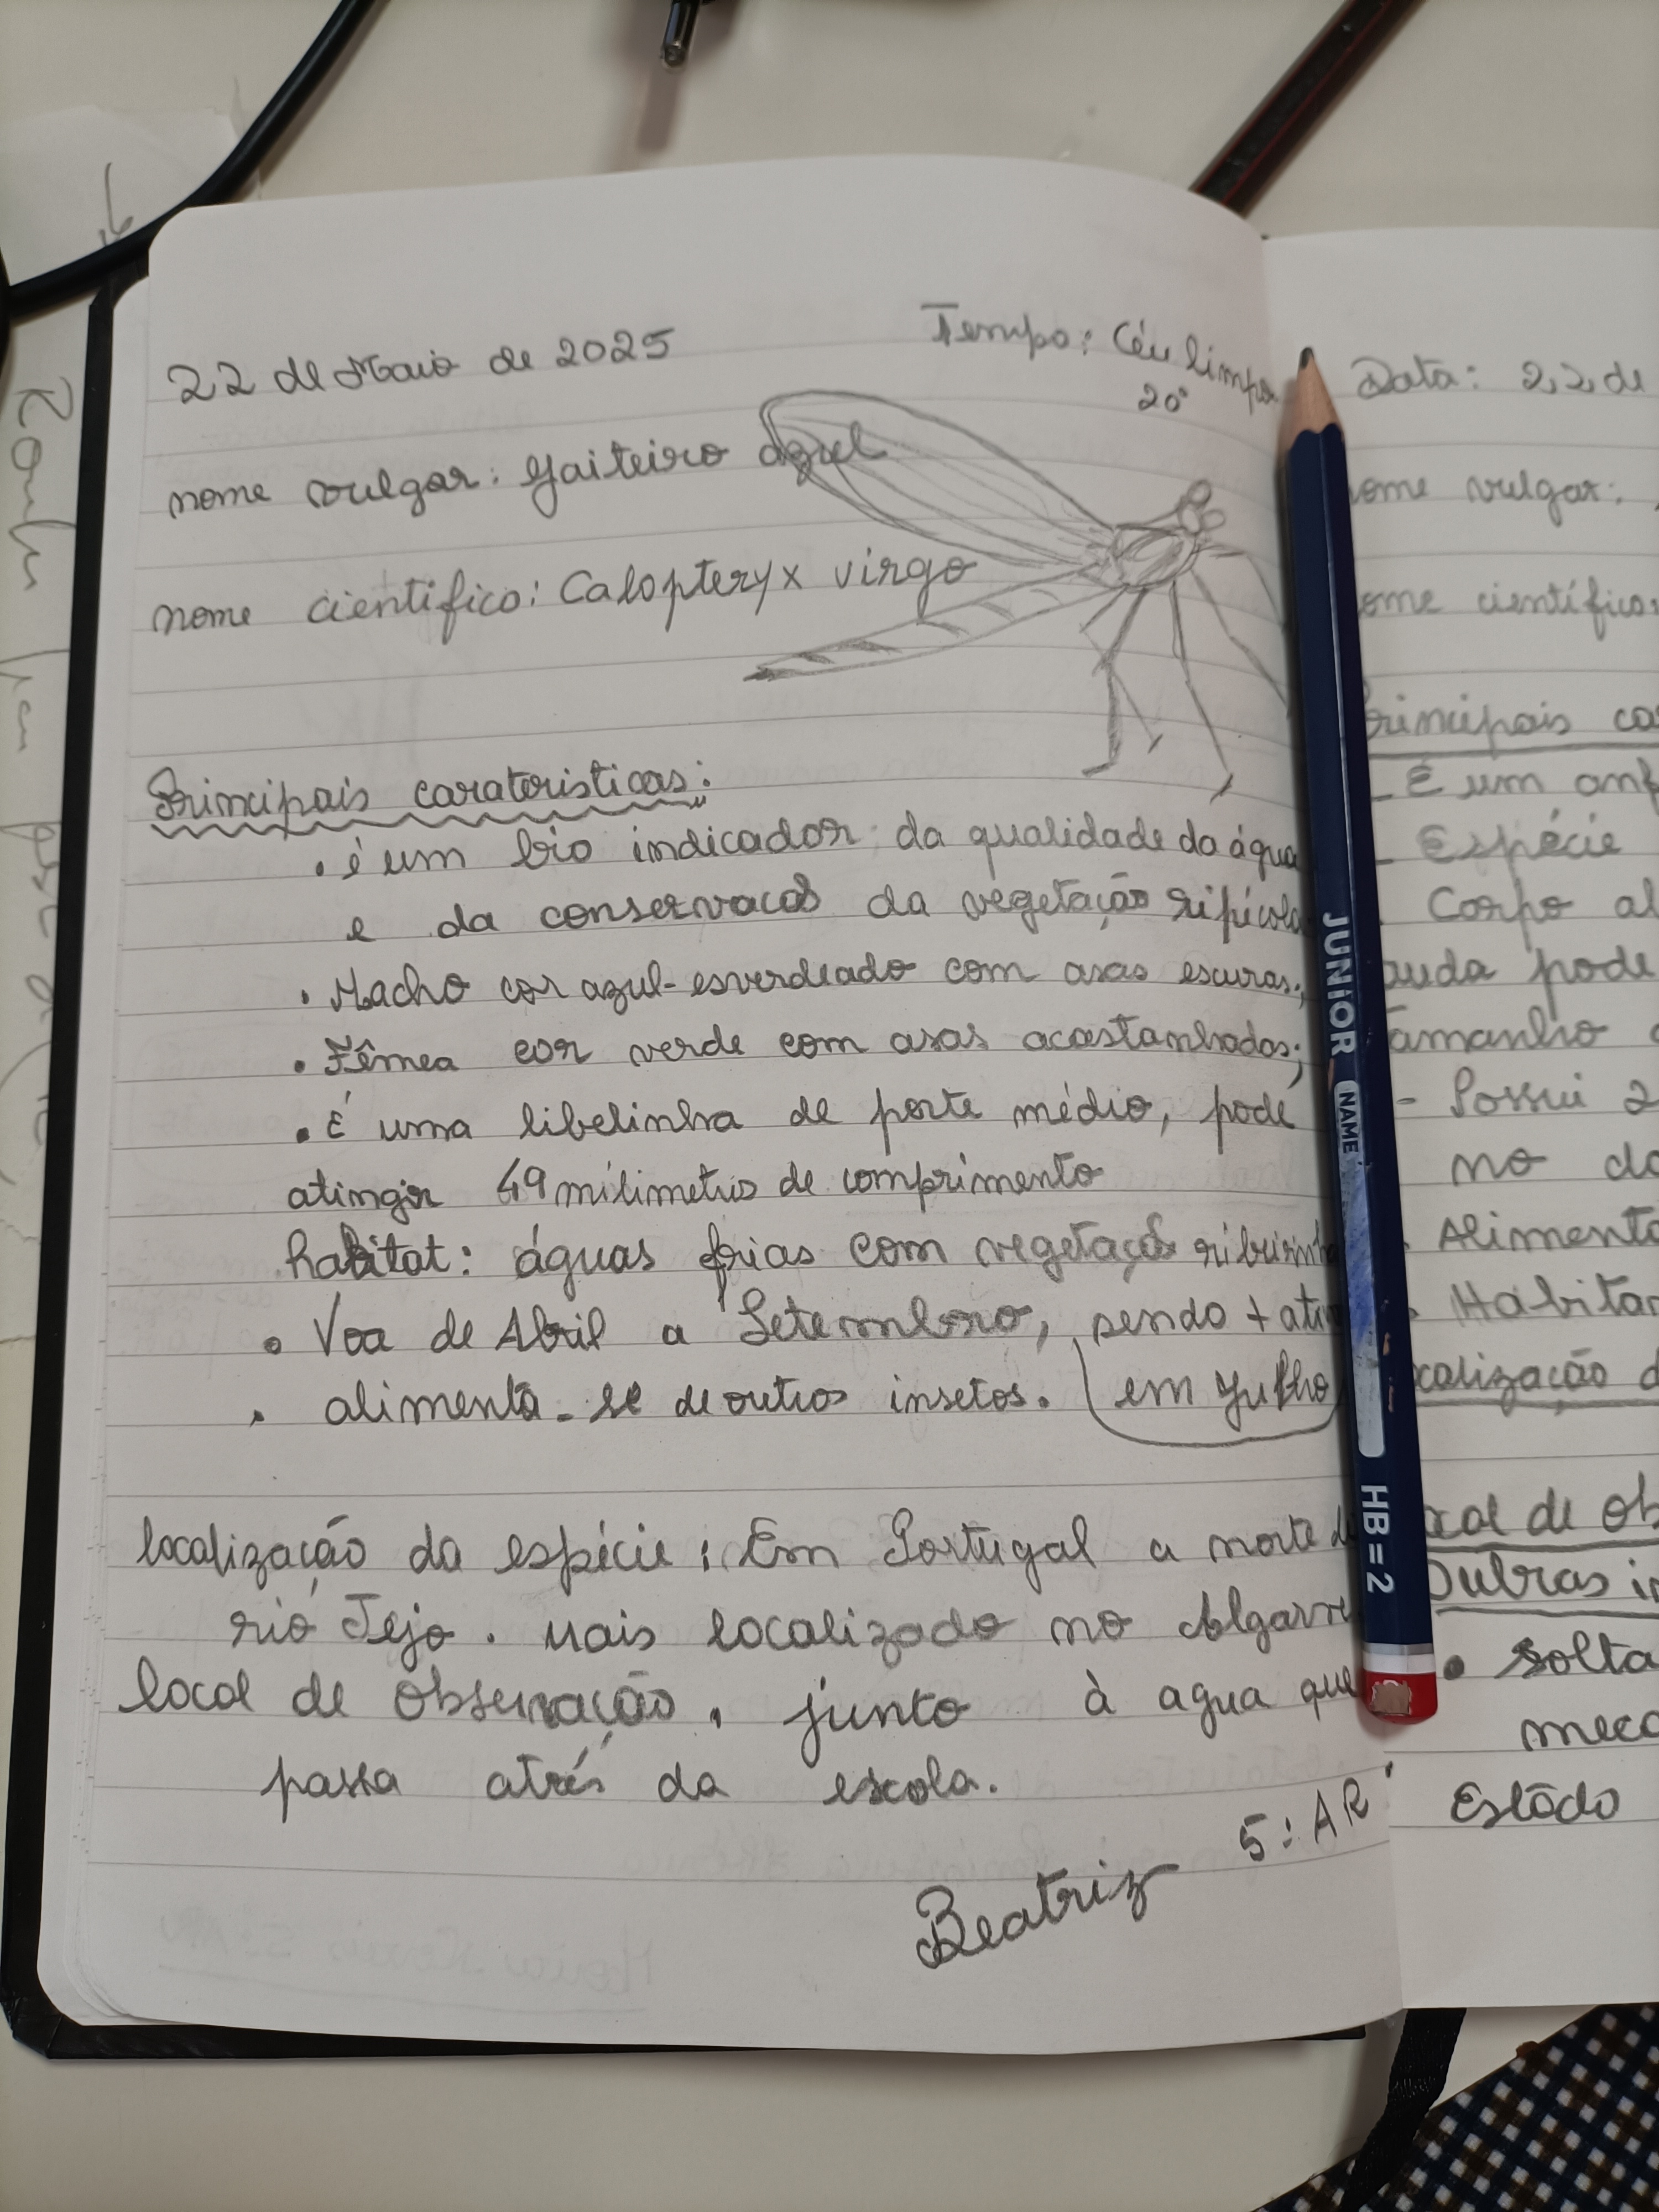 22 de Maio de 2025
Tempo: Céu limpo
20°
nome vulgar: Gaiteiro azul
nome científico: Calopteryx virgo
Principais caratoristicas:
• é um bio indicador da qualidade da água
e da conservacao da vegetação ripícola
• Macho cor azul-esverdeado com asas escuras;
• Fêmea cor verde com asas acastanhadas;
• É uma libelinha de porte médio, pode
atingir 49 milimetros de comprimento
habitat: águas frias com vegetação ribeirinha
• Voa de Abril a Setembro, sendo + ati
• alimenta-se de outros insetos. (em Julho)
localização da espécie: Em Portugal a norte do
rio Tejo. Mais localizado no Algarve
local de observação, junto à agua que
passa atrás da escola.
Beatriz 5: AR
Data: 22 de
nome vulgar:
nome científico:
Principais ca
- É um anf
- Espécie
Corpo al
auda pode
Tamanho
- Possui 2
no do
Alimenta
Habitan
calização d
cal de ob
Outras in
• solta
meca
Estado
JUNIOR NAME HB=2